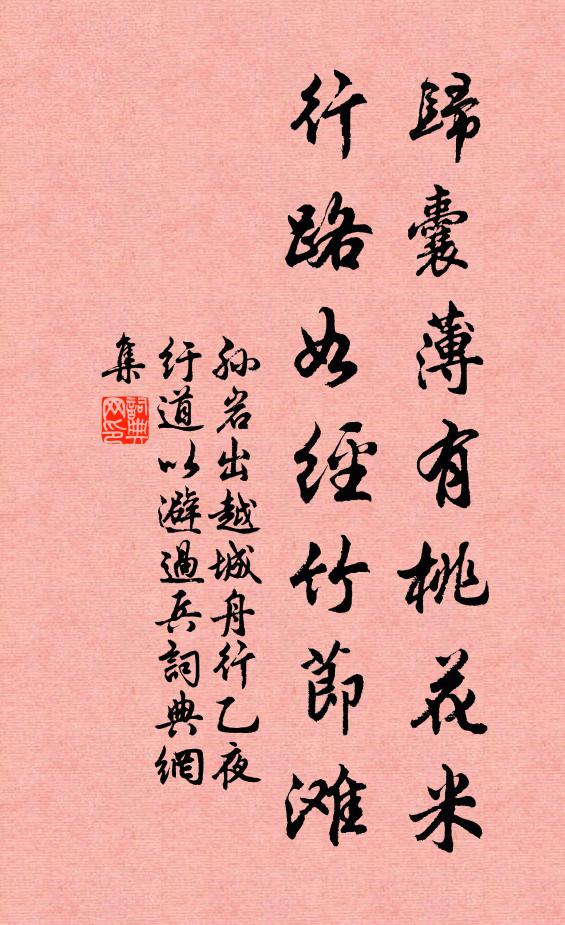 歸囊薄有桃花米
行路如經竹節滩
孙岩出越城舟行乙夜
紆道以避過兵詞典網
集
詞典
网印